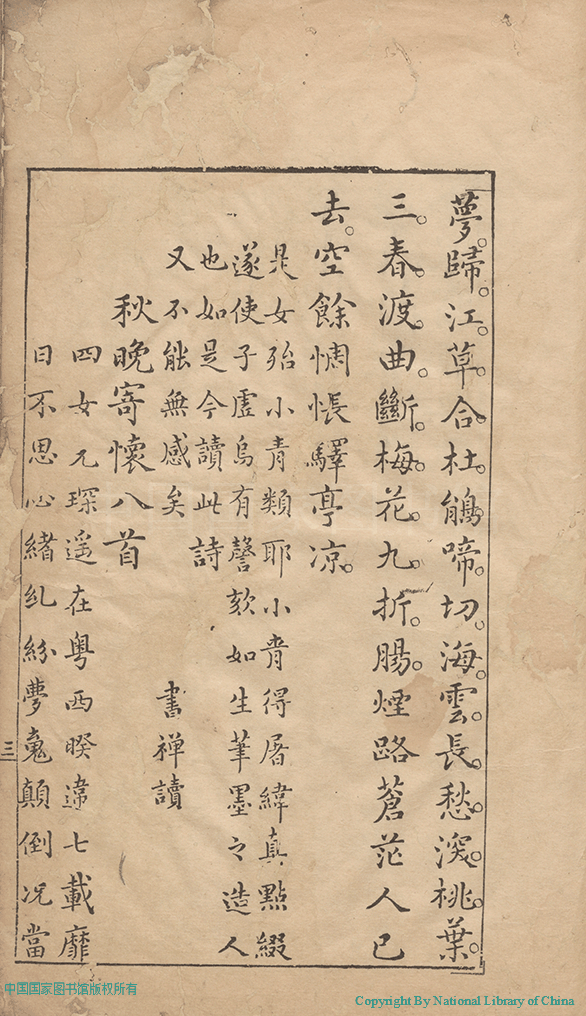 夢歸江草合杜鵑啼切海雲長愁深桃葉
三春渡曲斷梅花九折腸煙路蒼茫人已
去空餘惆悵驛亭凉
是女殆小青類耶小青得屠緯真點綴
遂使子虛烏有謦欬如生筆墨之造人
也如是今讀此詩
又不能無感矣 書禅讀
秋晚寄懷八首
四女兄琛遥在粤西暌違七載靡
日不思心緒乣紛夢䰟顛倒况當
三
中国国家图书馆版权所有
Copyright By National Library of China